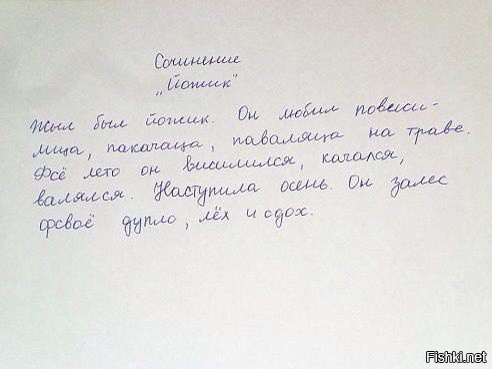 Сочинение
„Йожик"
Жыл был йожик. Он любил повесили-
лица, пакачаца, паваляца на траве.
Фсё лето он висилился, качался,
валялся. Наступила осень. Он залес
фсваё дупло, лёх и сдох.
Fishki.net